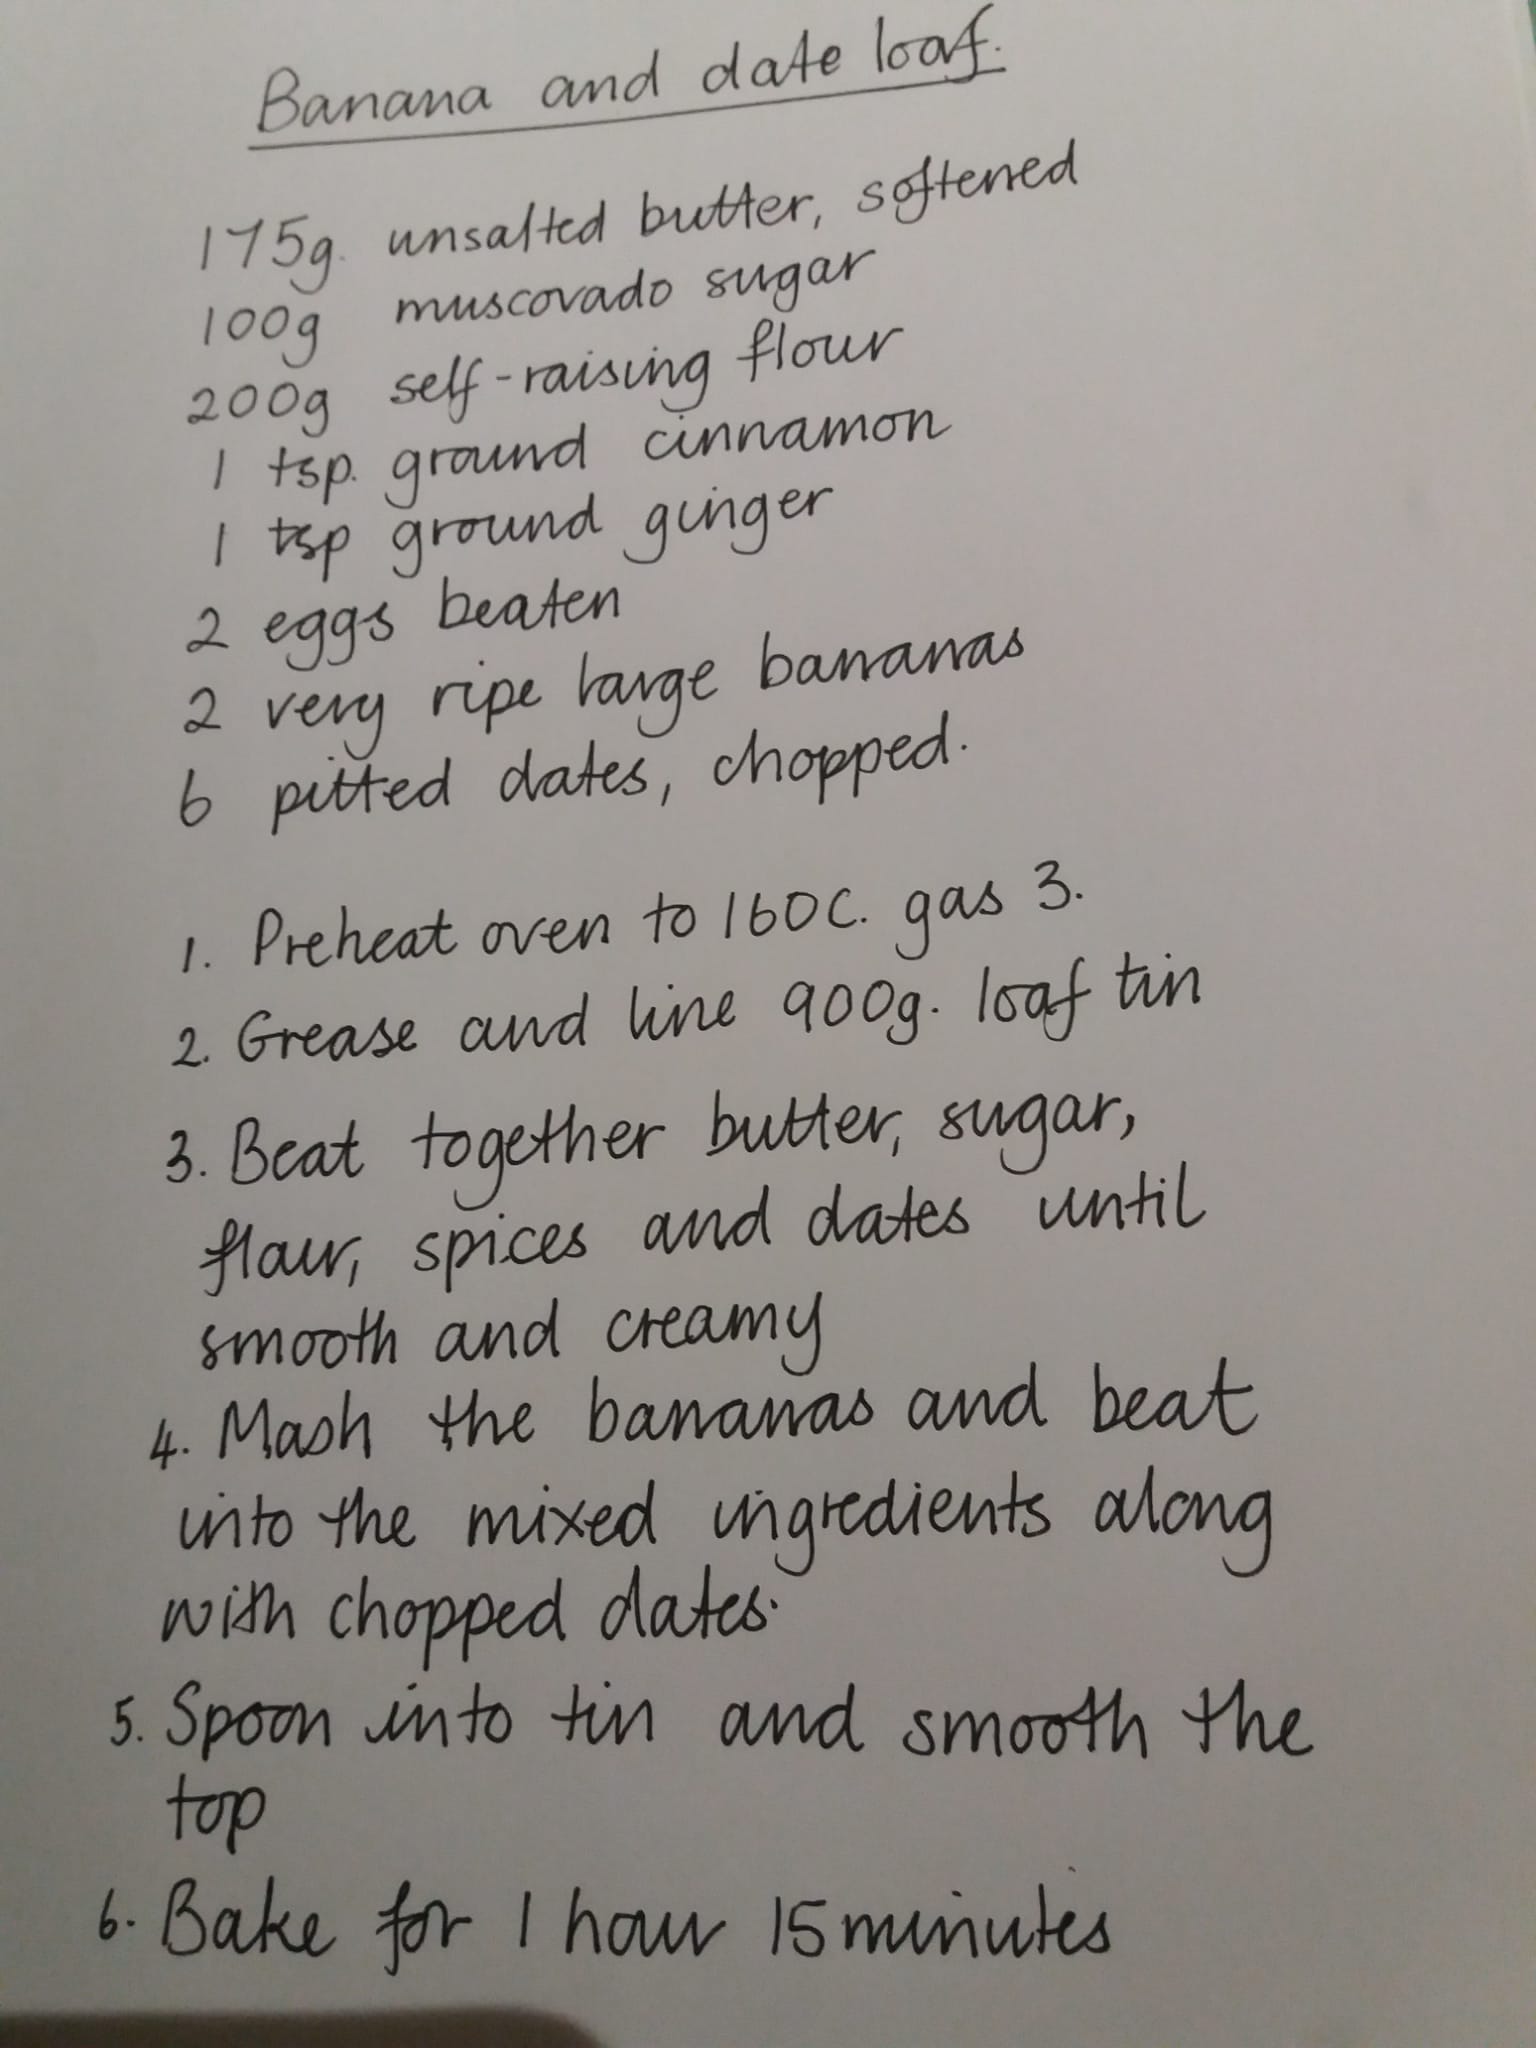 Banana and date loaf.
175g. unsalted butter, softened
100g muscovado sugar
200g self-raising flour
1 tsp. ground cinnamon
1 tsp ground ginger
2 eggs beaten
2 very ripe large bananas
6 pitted dates, chopped.
1. Preheat oven to 160C. gas 3.
2. Grease and line 900g. loaf tin
3. Beat together butter, sugar,
flour, spices and dates until
smooth and creamy
4. Mash the bananas and beat
into the mixed ingredients along
with chopped dates.
5. Spoon into tin and smooth the
top
6. Bake for 1 hour 15 minutes